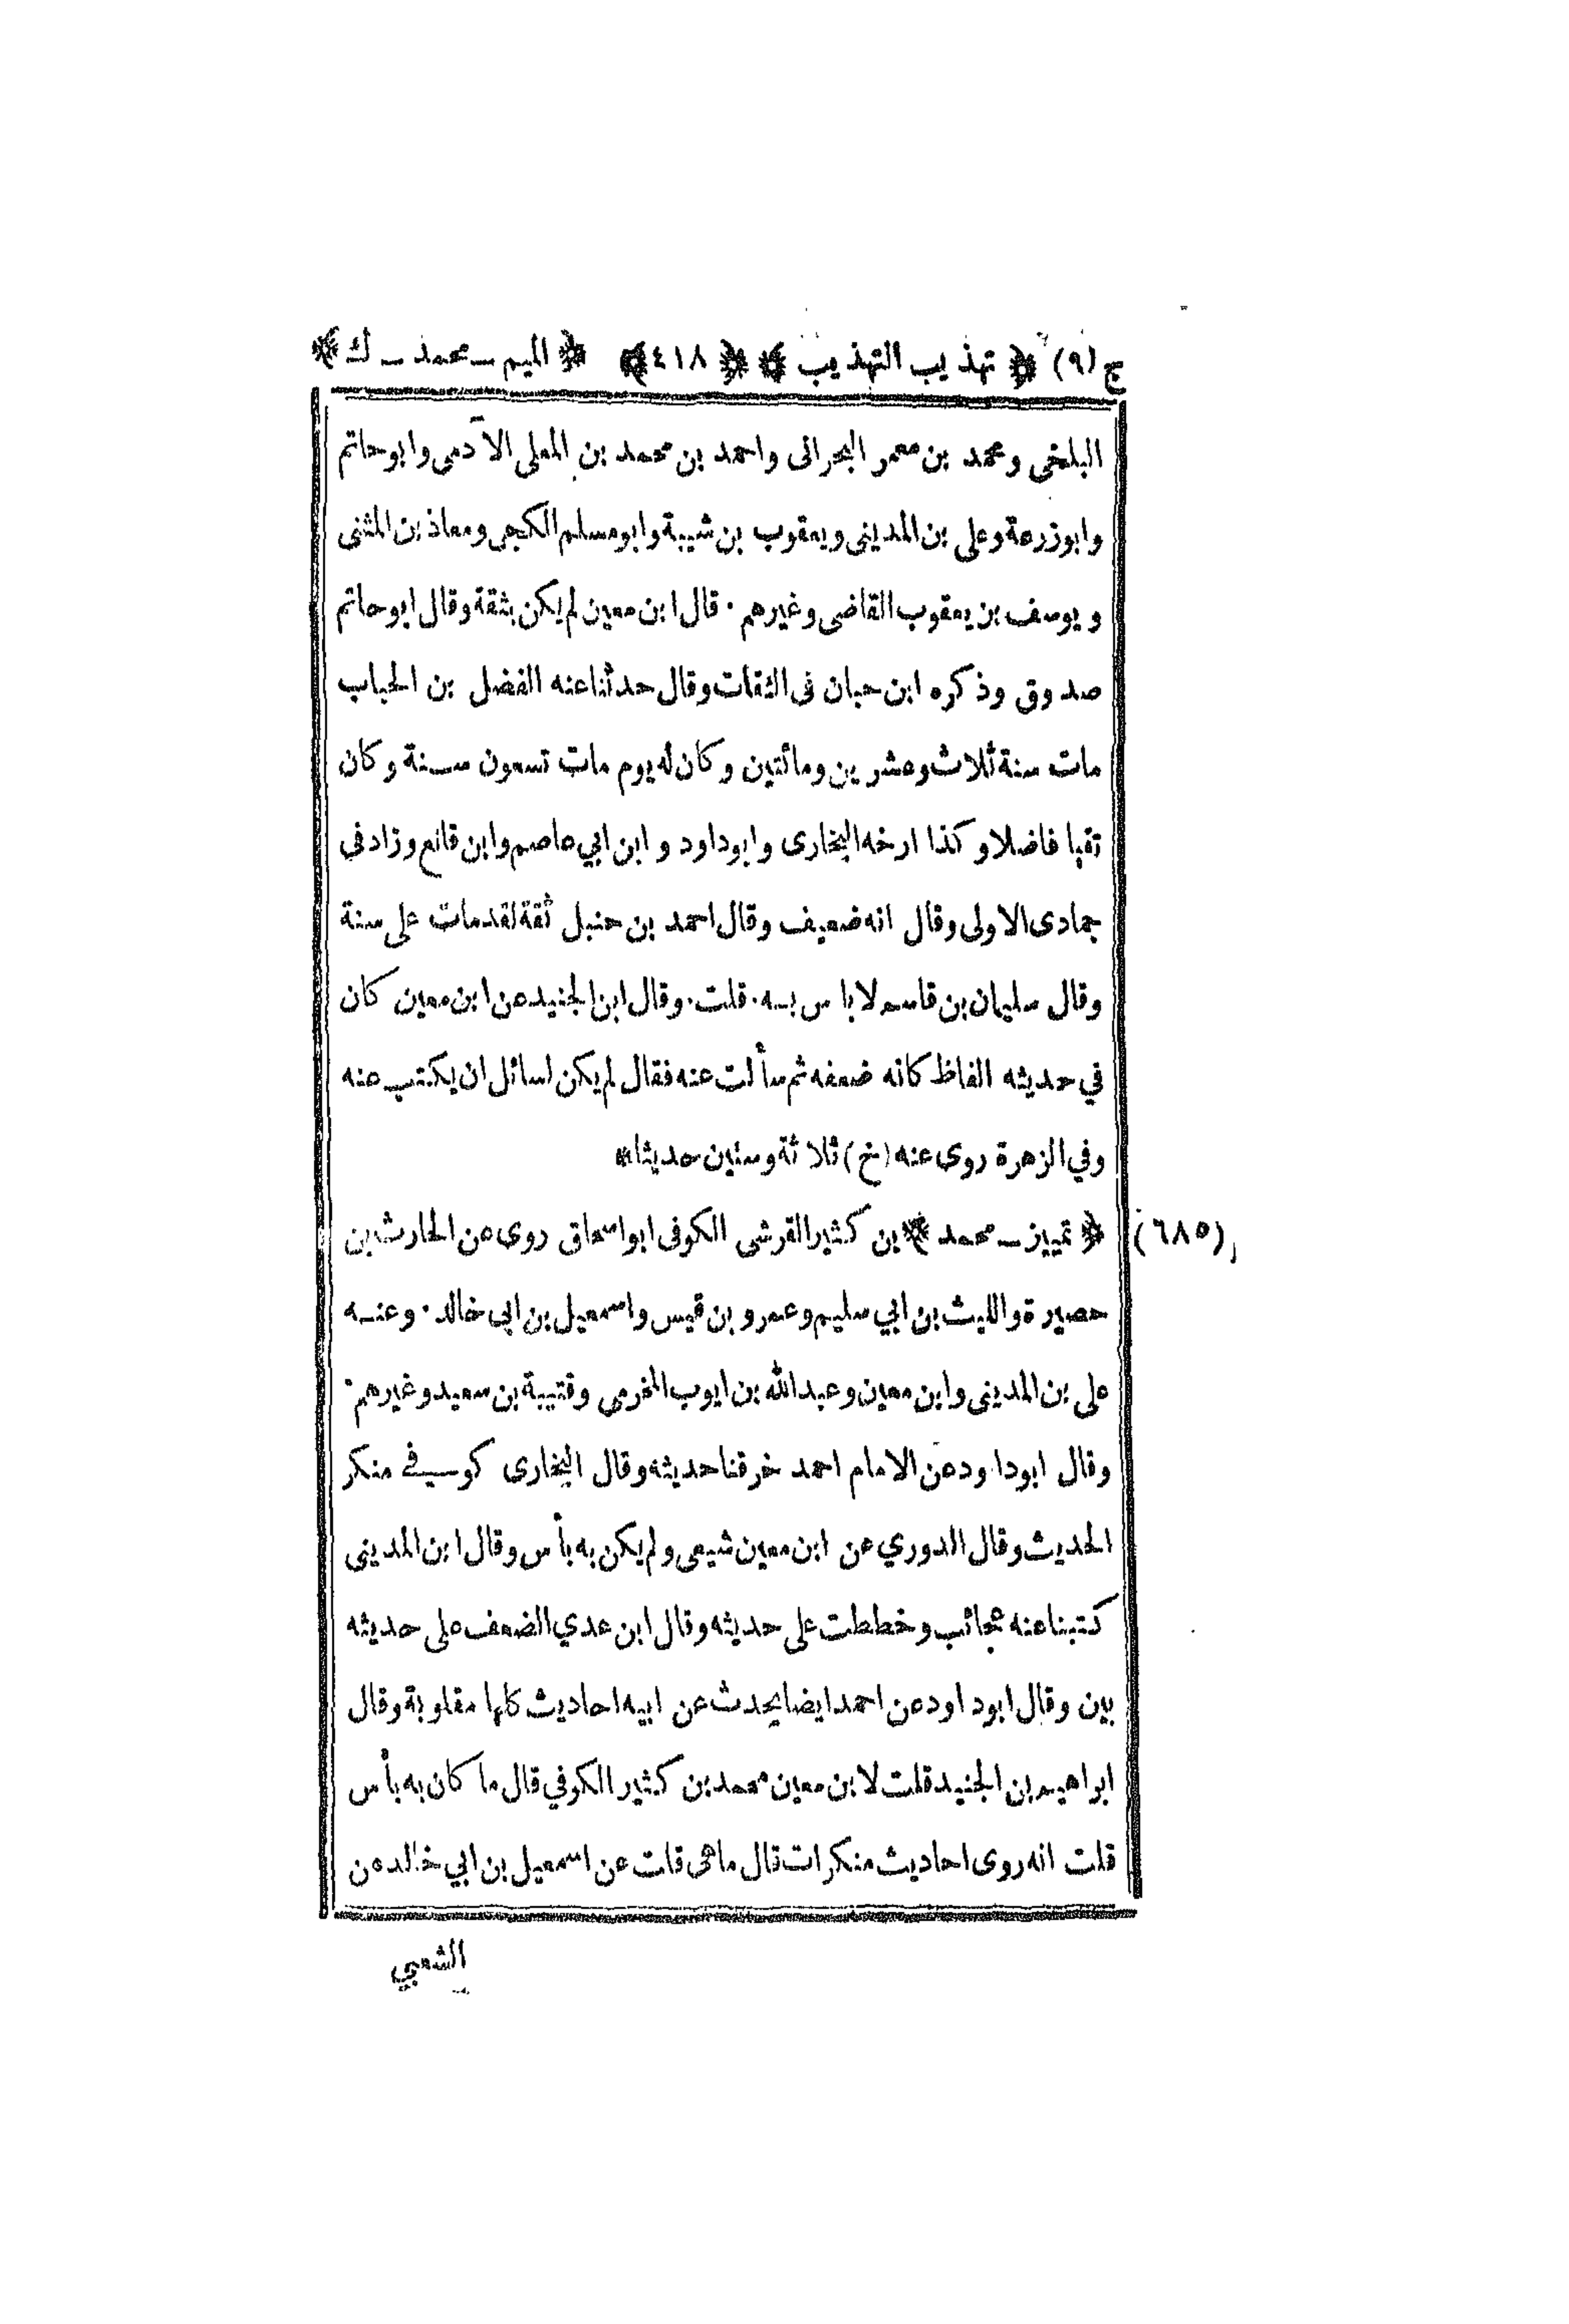 ج (٩) ﴿ تهذيب التهذيب ﴾ ﴿ ٤١٨ ﴾ ﴿ الميم ـ محمد ـ ك ﴾
البلخى ومحمد بن معمر البحرانى واحمد بن محمد بن المعلى الآدمى وابوحاتم
وابوزرعة وعلى بن المدينى ويعقوب بن شيبة وابومسلم الكجى ومعاذ بن المثنى
ويوسف بن يعقوب القاضى وغيرهم · قال ابن معين لم يكن بثقة وقال ابوحاتم
صدوق وذكره ابن حبان فى الثقات وقال حدثنا عنه الفضل بن الحباب
مات سنة ثلاث وعشرين ومائتين وكان له يوم مات تسعون سنة وكان
تقيا فاضلا وكذا ارخه البخارى وابوداود وابن ابي عاصم وابن قانع وزاد فى
جمادى الاولى وقال انه ضعيف وقال احمد بن حنبل ثقة لقد مات على سنة
وقال سليمان بن قاسم لا باس به · قلت · وقال ابن الجنيد عن ابن معين كان
في حديثه الفاظ كانه ضعفه ثم سألت عنه فقال لم يكن لسائل ان يكتب عنه
وفي الزهرة روى عنه (خ) ثلاثة وستين حديثا *
(٦٨٥) ﴿ تمييز ـ محمد ﴾ بن كثير القرشى الكوفى ابو اسحاق روى عن الحارث بن
حصيرة والليث بن ابي سليم وعمرو بن قيس واسمعيل بن ابى خالد · وعنه
على بن المدينى وابن معين وعبدالله بن ايوب المخرمى وقتيبة بن سعيد وغيرهم ·
وقال ابوداود عن الامام احمد خرقنا حديثه وقال البخارى كوفى منكر
الحديث وقال الدوري عن ابن معين شيعى ولم يكن به بأس وقال ابن المدينى
كتبنا عنه عجائب وخططت على حديثه وقال ابن عدي الضعف على حديثه
بين وقال ابوداود عن احمد ايضا يحدث عن ابيه احاديث كلها مقلوبة وقال
ابراهيم بن الجنيد قلت لابن معين محمد بن كثير الكوفي قال ما كان به بأس
قلت انه روى احاديث منكرات قال ماهى قلت عن اسمعيل بن ابي خالد عن
الشعبي